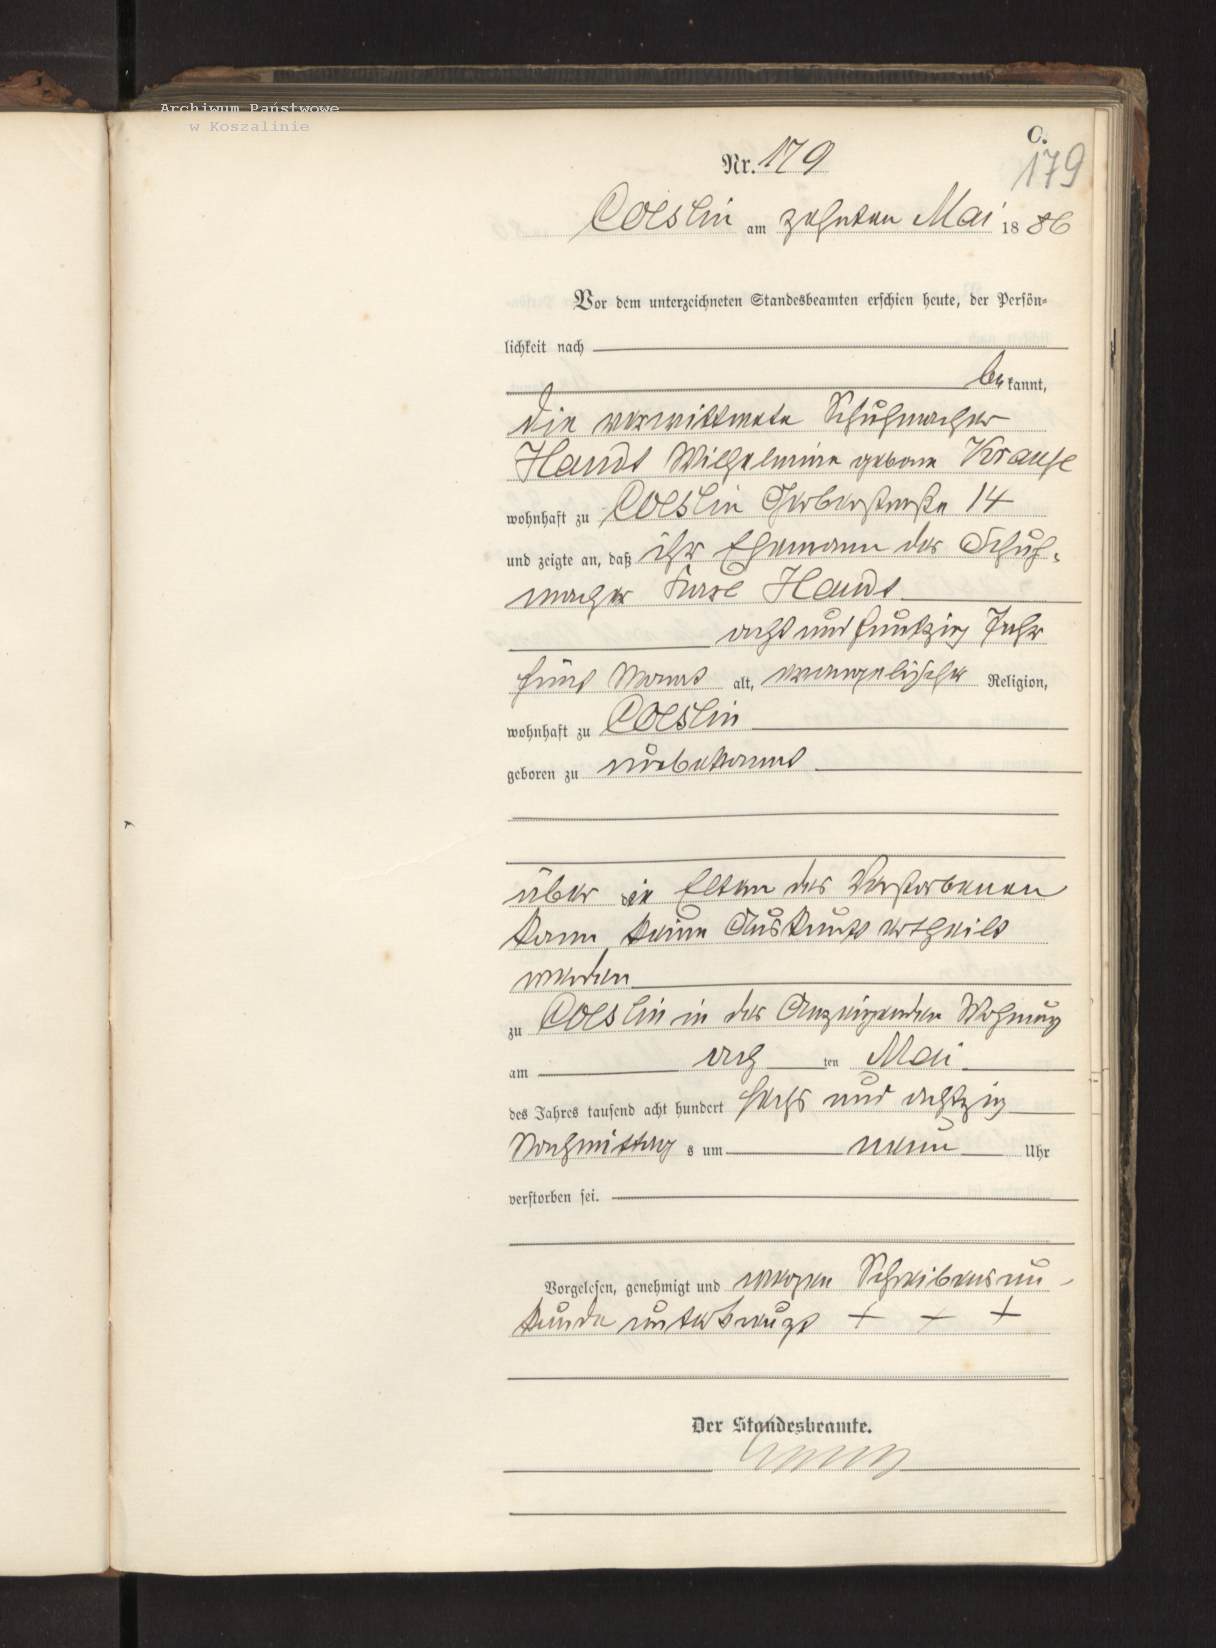 Archiwum Państwowe
w Koszalinie
C.
Nr. 179
179
Coeslin am zehnten Mai 1886
Vor dem unterzeichneten Standesbeamten erschien heute, der Persön-
lichkeit nach
bekannt,
die verwittwete Schuhmacher
Handt Wilhelmine geborne Krause
wohnhaft zu Coeslin Gerberstraße 14
und zeigte an, daß ihr Ehemann der Schuh-
macher Karl Handt
acht und funfzig Jahr
fünf Monat alt, evangelischer Religion,
wohnhaft zu Coeslin
geboren zu unbekannt
über die Eltern des Verstorbenen
kann keine Auskunft ertheilt
werden
zu Coeslin in der Anzeigenden Wohnung
am acht ten Mai
des Jahres tausend acht hundert sechs und achtzig
Nachmittags um neun Uhr
verstorben sei.
Vorgelesen, genehmigt und wegen Schreibensun-
kunde unterkreuzt + + +
Der Standesbeamte.